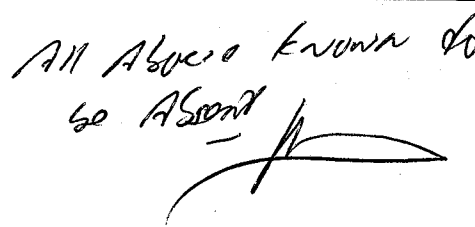 All Above known to
be Absent